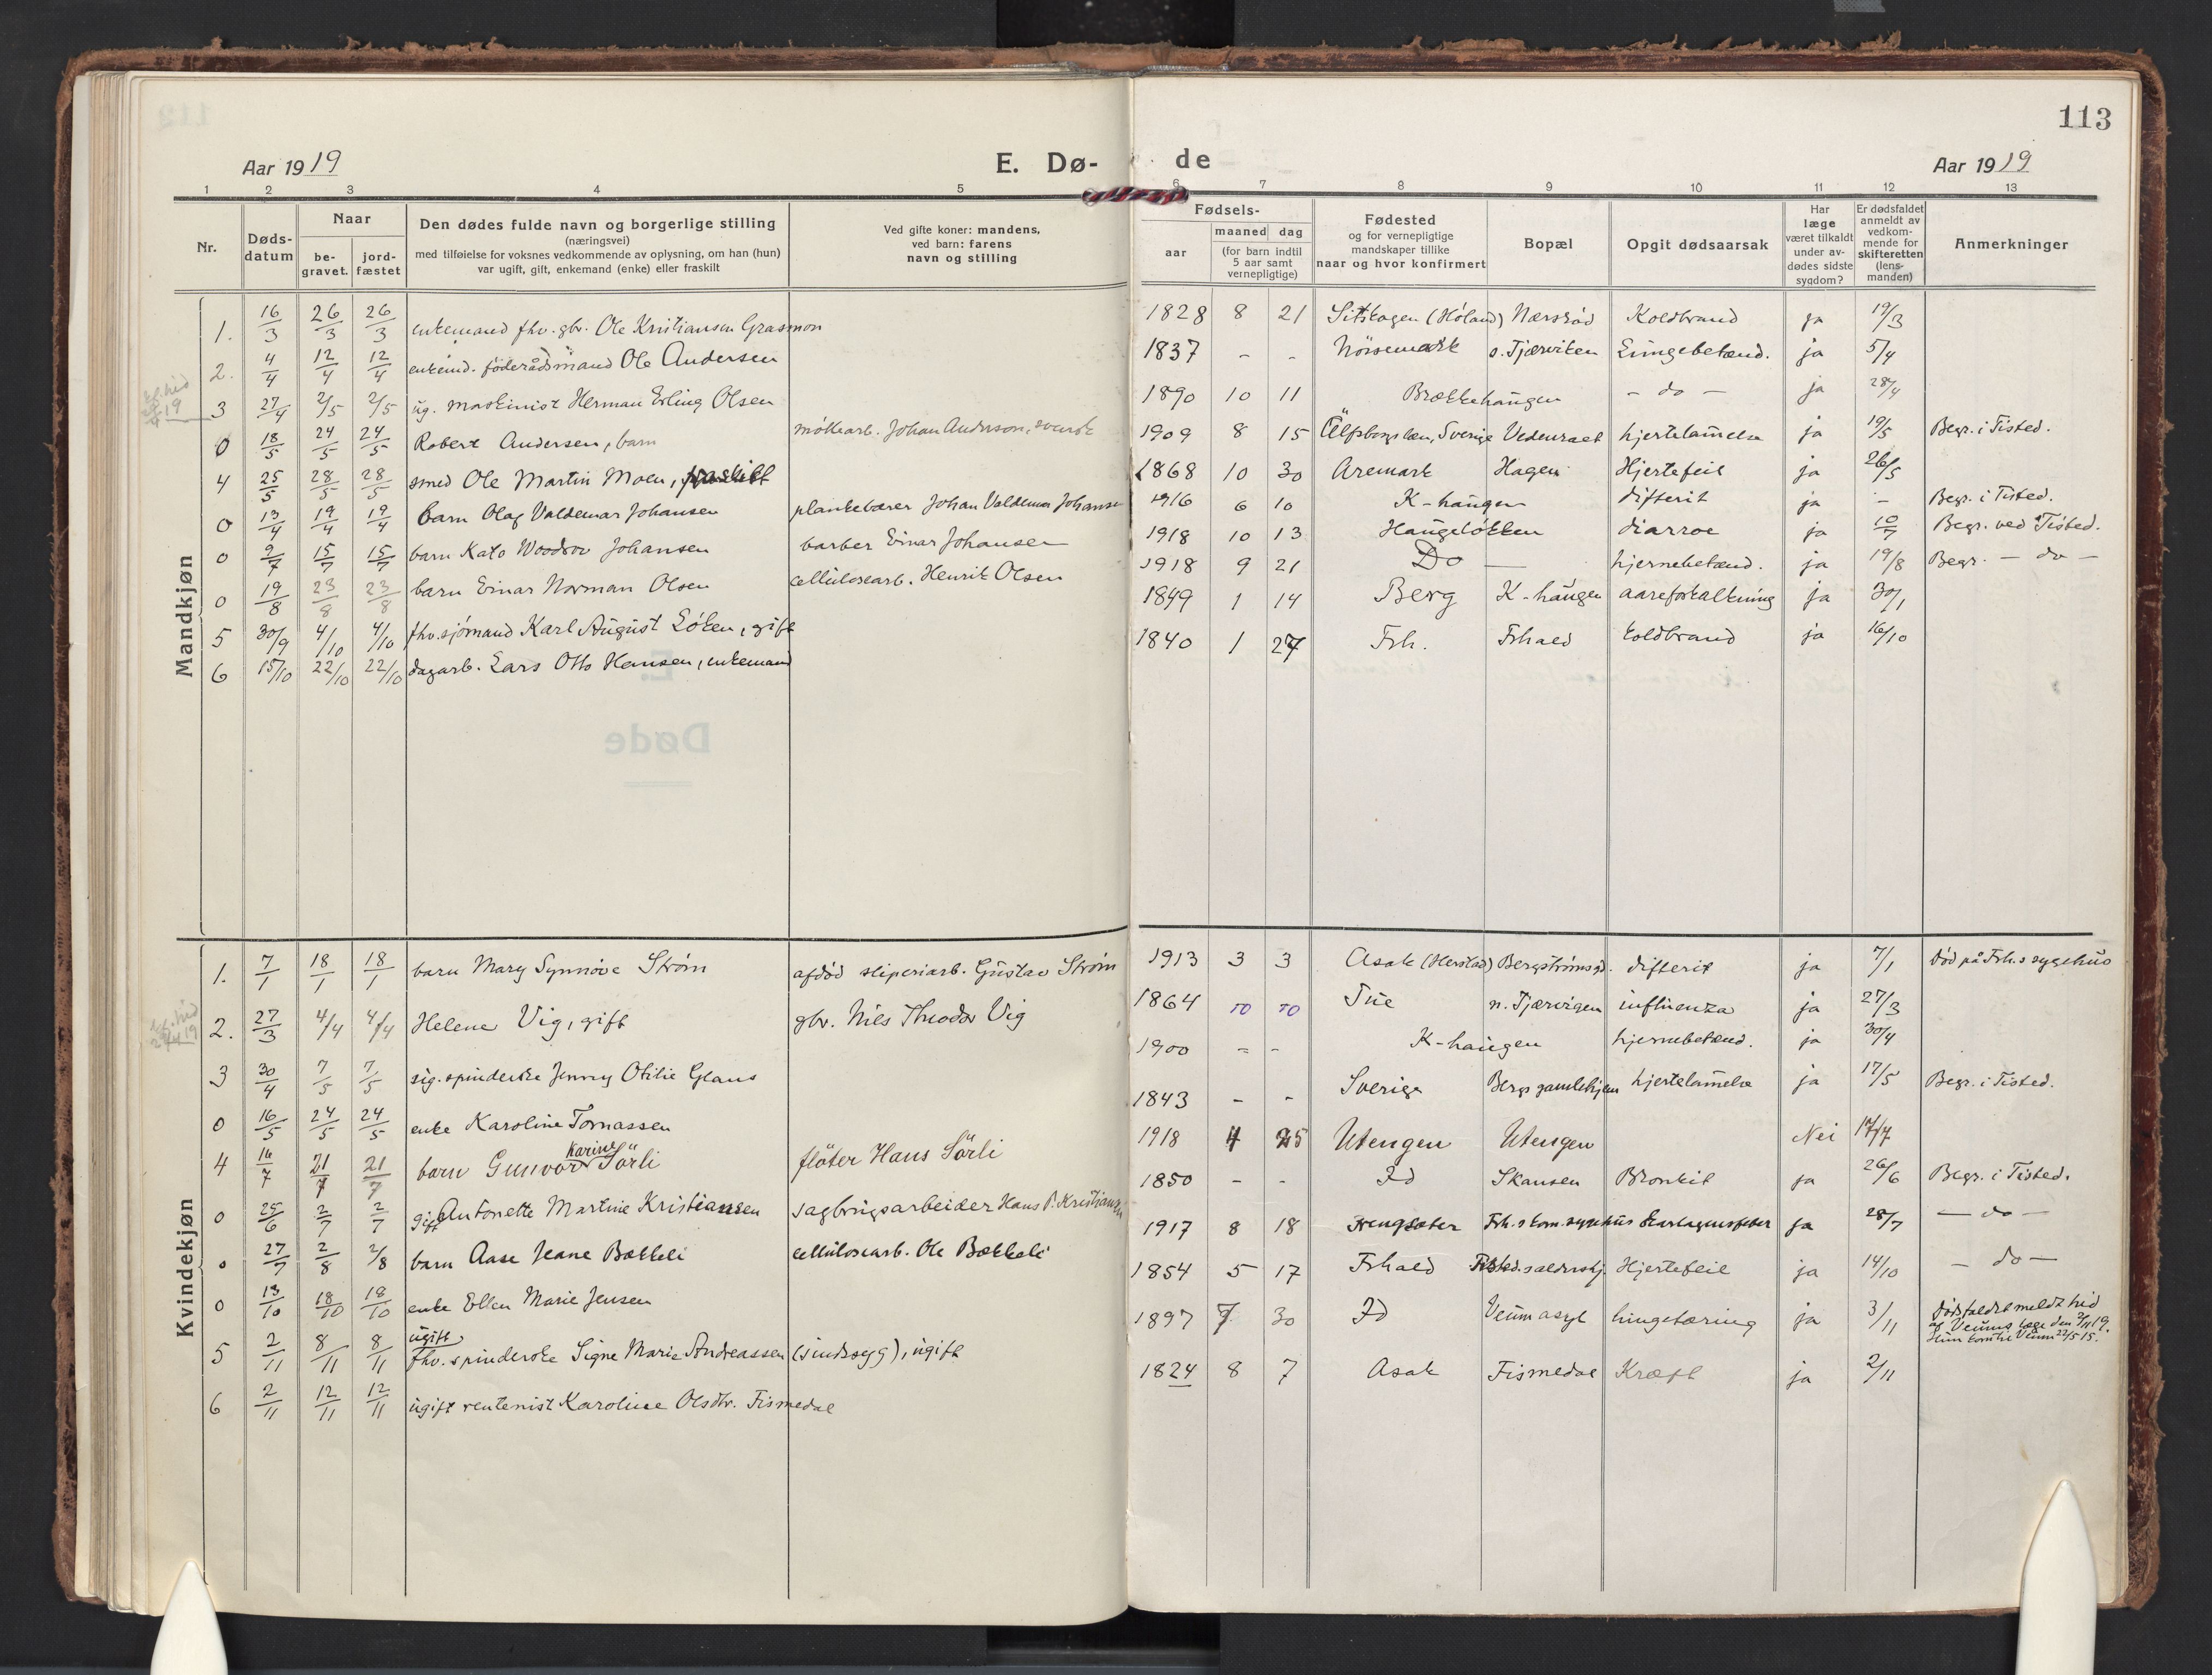 113
Aar 1919
E. Dø-
de
Aar 1919
1 2 3 4 5 6 7 8 9 10 11 12 13
Nr.
Døds-
datum
Naar
be-
gravet.
jord-
fæstet
Den dødes fulde navn og borgerlige stilling
(næringsvei)
med tilføielse for voksnes vedkommende av oplysning, om han (hun)
var ugift, gift, enkemand (enke) eller fraskilt
Ved gifte koner: mandens,
ved barn: farens
navn og stilling
Fødsels-
aar
maaned dag
(for barn indtil
5 aar samt
vernepligtige)
Fødested
og for vernepligtige
mandskaper tillike
naar og hvor konfirmert
Bopæl
Opgit dødsaarsak
Har
læge
været tilkaldt
under av-
dødes sidste
sygdom?
Er dødsfaldet
anmeldt av
vedkom-
mende for
skifteretten
(lens-
manden)
Anmerkninger
Mandkjøn
1. 16/3 26/3 26/3 enkemand fhv. gbr. Ole Kristiansen Grasmon 1828 8 21 (Høland) Nærsrød Koldbrand ja 19/3
2. 4/4 12/4 12/4 enkemd. föderådsmand Ole Andersen 1837 - - Nörsemark s. Tjærviken Lungebetænd. ja 5/4
3 27/4 2/5 2/5 ug. maskinist Herman Erling Olsen 1890 10 11 Brækkehaugen - do - ja 28/4
0 18/5 24/5 24/5 Robert Andersen, barn møllearb. Johan Anderson, svensk 1909 8 15 Älfsborgs læn, Sverige Vedenraet hjertelamelse ja 19/5 Begr. i Tisted.
4 25/5 28/5 28/5 smed Ole Martin Moen, fraskilt 1868 10 30 Aremark Hagen Hjertefeil ja 26/5
0 13/4 19/4 19/4 barn Olaf Valdemar Johansen plankebærer Johan Valdemar Johansen 1916 6 10 K-haugen difterit ja - Begr. i Tisted.
0 9/7 15/7 15/7 barn Kato Woodrov Johansen barber Einar Johansen 1918 10 13 Haugeløkken diarroe ja 10/7 Begr. ved Tisted.
0 19/8 23/8 23/8 barn Einar Norman Olsen cellulosearb. Henrik Olsen 1918 9 21 Do — hjernebetænd. ja 19/8 Begr. - do -
5 30/9 4/10 4/10 fhv. sjömand Karl August Löken, gift 1849 1 14 Berg K-haugen aareforkalkning ja 30/1
6 15/10 22/10 22/10 dagarb. Lars Otto Hansen, enkemand 1840 1 27 Frh. Frhald koldbrand ja 16/10
E.
Døde
Kvindekjøn
1. 7/1 18/1 18/1 barn Mary Synnöve Ström afdöd sliperiarb. Gustav Ström 1913 3 3 Asak (Herstad) Bergströmsgd. difterit ja 7/1 Död på Frh.s sygehus
2. 27/3 4/4 4/4 Helene Vig, gift gbr. Nils Theodor Vig 1864 10 10 Tue n. Tjærvigen influenza ja 27/3
3 30/4 7/5 7/5 sig. spinderske Jenny Otilie Glans 1900 - - K-haugen hjernebetænd. ja 30/4
0 16/5 24/5 24/5 enke Karoline Tomassen 1843 - - Sverige Bergs gamlehjem hjertelamelse ja 17/5 Begr. i Tisted.
4 16/7 21/7 21/7 barn Gunvor Karine Sörli flöter Hans Sörli 1918 4 25 Utengen Utengen Nei 17/7
0 25/6 2/7 2/7 gift Antonette Martine Kristiansen sagbrugsarbeider Hans P. Kristiansen 1850 - - Id Skansen Bronkit ja 26/6 Begr. i Tisted.
0 27/7 2/8 2/8 barn Aase Jeane Bækkeli cellulosearb. Ole Bækkeli 1917 8 18 Frh.s kom. sygehus Skarlagensfeber ja 28/7 - do -
0 13/10 18/10 18/10 enke Ellen Marie Jensen 1854 5 17 Frhald Tisted.s aldershj. Hjertefeil ja 14/10 - do -
5 2/11 8/11 8/11 ugift fhv. spinderske Signe Marie Andreassen (sindssyg), ugift 1897 7 30 Id Veum asyl lungetæring ja 3/11 Dödsfaldet meldt hid
af Veums læge den 2/11 19.
Hun kom til Veum 22/5 15.
6 2/11 12/11 12/11 ugift rentenist Karoline Olsdtr. Fismedal 1824 8 7 Asak Fismedal Kræft ja 2/11